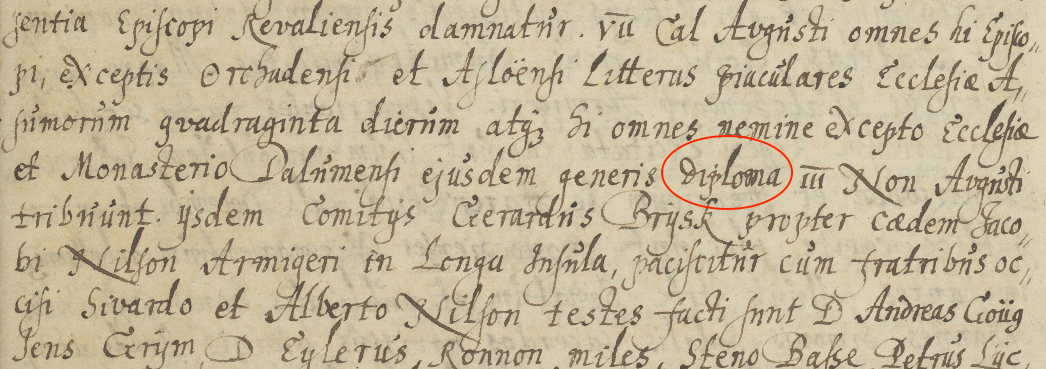 sentia Episcopi Revaliensis damnatur. VII Cal Augusti omnes hi Episco-
pi, exceptis Orchadensi et Asloënsi Litteras piaculares Ecclesiæ A-
sumorum quadraginta dierum atq3 hi omnes nemine excepto Ecclesiæ
et Monasterio Dalumensi ejusdem generis diploma III Non Augusti
tribuunt. ijsdem Comitijs Gerardus Brijsk propter cædem Jaco-
bi Nilson Armigeri in Longa Insula, paciscitur cum fratribus oc-
cisi Sivardo et Alberto Nilson testes facti sunt D Andreas Goüg
Jens Grijm, D Eylerus, Ronnon miles, Steno Basse Petrus Lijc,